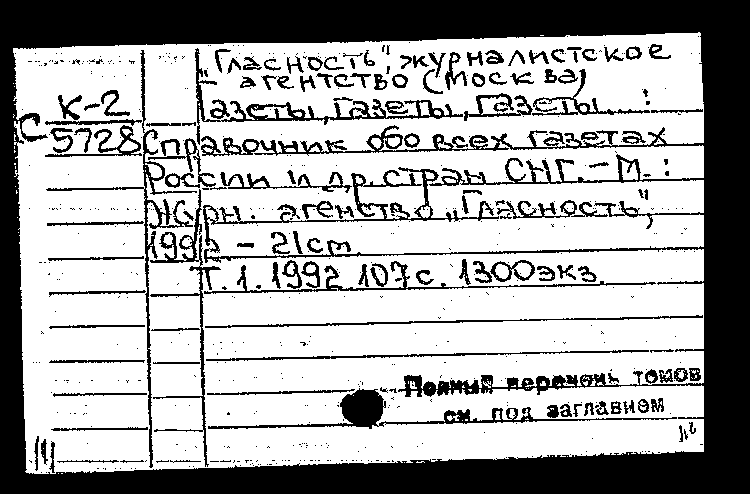 „Гласность", журналистское
агентство (Москва)
Газеты, газеты, газеты... :
К-2
С 5728
Справочник обо всех газетах
России и др. стран СНГ. – М. :
Журн. агенство „Гласность",
1992 – 21cm
Т. 1. 1992 107 с. 1300 экз.
Полный перечень томов
см. под заглавием